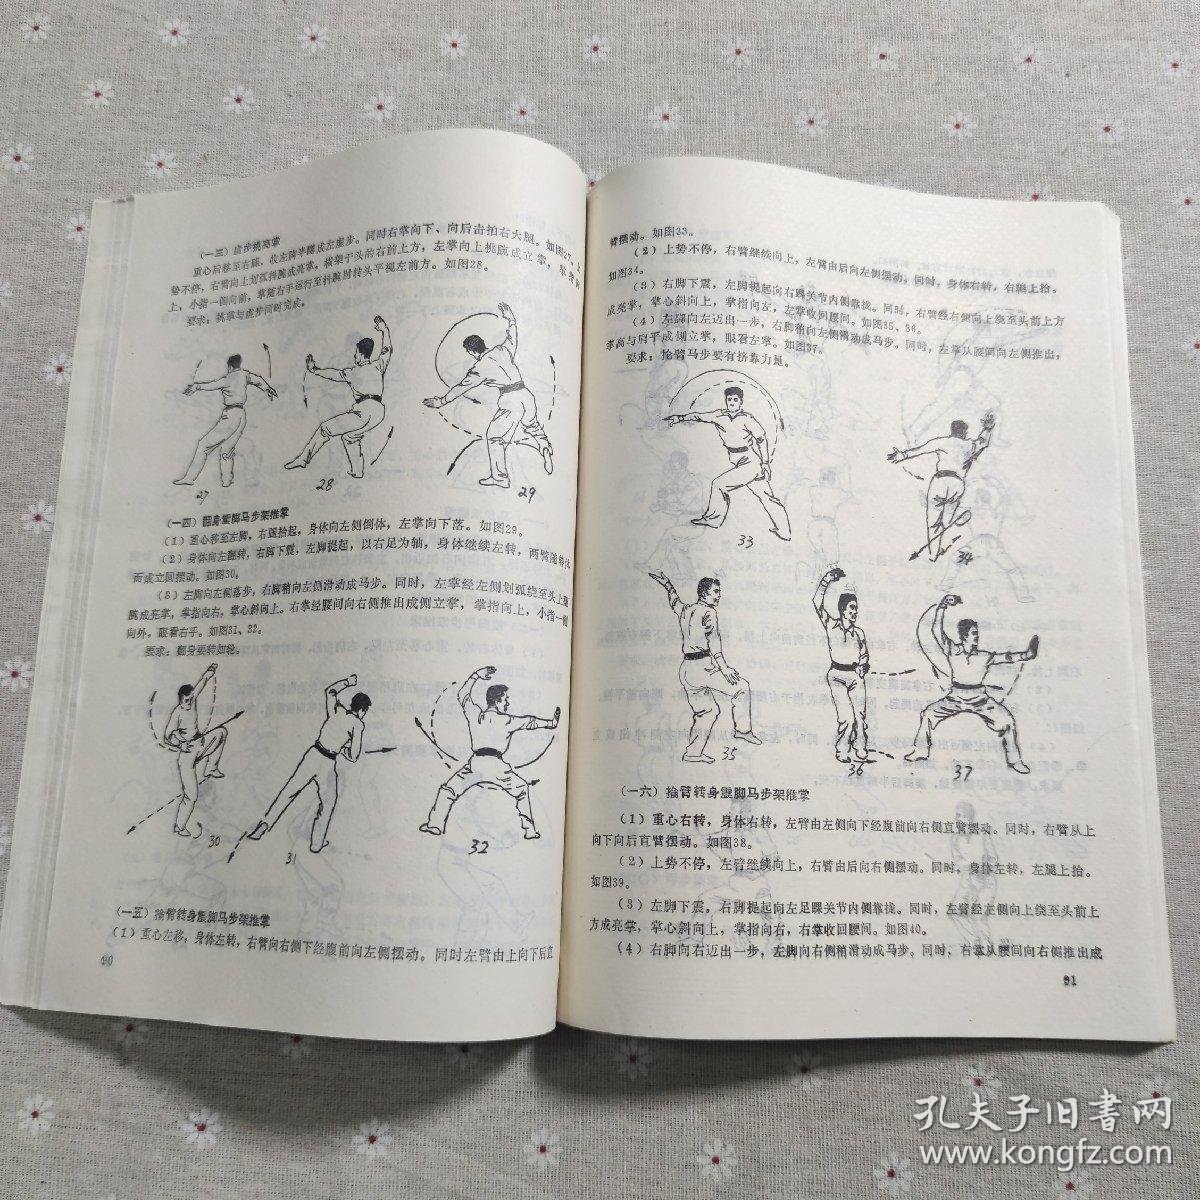 (一三)虚步挑亮掌
重心后移至右腿，收左脚半蹲成左虚步。同时右掌向下、向后击拍右大腿。如图27。上
势不停，右臂向上划弧抖腕成亮掌，横架于头的右前上方，左掌向上挑腕成立掌，掌指向
上，小指一侧向前，掌随右手运行至抖腕时转头平视左前方。如图28。
要求：挑掌与虚步同时完成。
27
28
29
(一四)翻身震脚马步架推掌
(1)重心移至左脚，右腿抬起，身体向左侧倒体，左掌向下落。如图29。
(2)身体向左翻转，右脚下震，左脚提起，以右足为轴，身体继续左转，两臂随转体
而成立圆摆动。如图30。
(3)左脚向左侧落步，右脚稍向左侧滑动成马步。同时，左掌经左侧划弧绕至头上
腕成亮掌，掌指向右，掌心斜向上。右掌经腰间向右侧推出成侧立掌，掌指向上，小指一侧
向外，眼看右手。如图31、32。
要求：翻身要转如轮。
30
31
32
(一五)抡臂转身震脚马步架推掌
(1)重心左移，身体左转，右臂向右侧下经腹前向左侧摆动。同时左臂由上向下后直
90
臂摆动。如图33。
(2)上势不停，右臂继续向上，左臂由后向左侧摆动。同时，身体右转，右腿上抬。
如图34。
(3)右脚下震，左脚提起向右踝关节内侧靠拢。同时，右臂经右侧向上绕至头前上方
成亮掌，掌心斜向上，掌指向左，左掌收回腰间。如图35、36。
(4)左脚向左迈出一步，右脚稍向左侧滑动成马步。同时，左掌从腰间向左侧推出，
掌高与肩平成侧立掌，眼看左掌。如图37。
要求：抡臂马步要有挤靠力量。
33
34
35
36
37
(一六)抡臂转身震脚马步架推掌
(1)重心右转，身体右转，左臂由左侧向下经腹前向右侧直臂摆动。同时，右臂从上
向下向后直臂摆动。如图38。
(2)上势不停，左臂继续向上，右臂由后向右侧摆动。同时，身体左转，左腿上抬。
如图39。
(3)左脚下震，右脚提起向左足踝关节内侧靠拢。同时，左臂经左侧向上绕至头前上
方成亮掌，掌心斜向上，掌指向右，右掌收回腰间。如图40。
(4)右脚向右迈出一步，左脚向右侧稍滑动成马步。同时，右掌从腰间向右侧推出成
91
孔夫子旧书网
www.kongfz.com